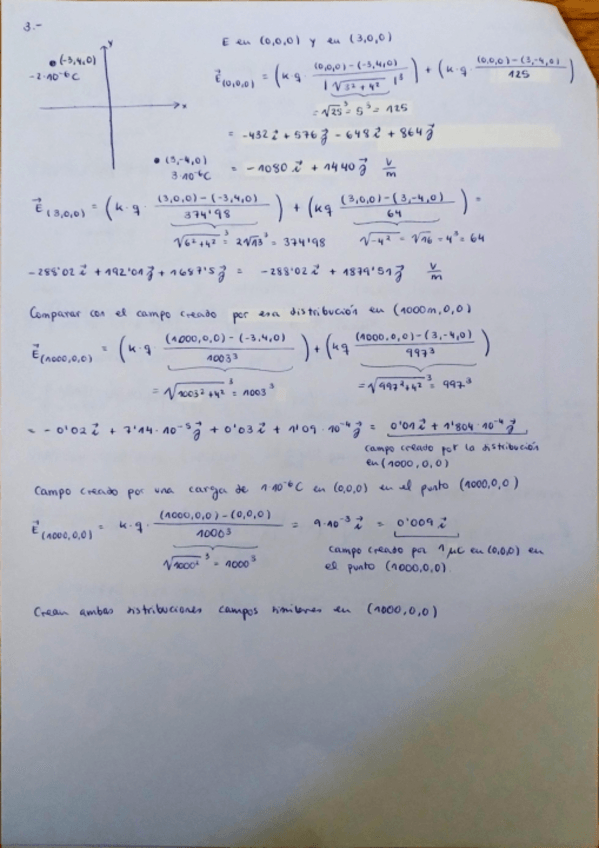 3.-
E en (0,0,0) y en (3,0,0)
y
(-3,4,0)
-2·10⁻⁶C
x
(3,-4,0)
3·10⁻⁶C
E⃗(0,0,0) = (k·q· (0,0,0)-(-3,4,0) / |√3²+4²|³) + (k·q· (0,0,0)-(3,-4,0) / 125)
=√25³=5³=125
= -432i⃗+576j⃗-648i⃗+864j⃗
= -1080i⃗+1440j⃗ V/m
E⃗(3,0,0) = (k·q· (3,0,0)-(-3,4,0) / 374'98) + (kq (3,0,0)-(3,-4,0) / 64) =
√6²+4²³=2√13³=374'98 √-4²=√16=4³=64
-288'02i⃗+192'01j⃗+1687'5j⃗ = -288'02i⃗+1879'51j⃗ V/m
Comparar con el campo creado por esa distribución en (1000m,0,0)
E⃗(1000,0,0) = (k·q· (1000,0,0)-(-3,4,0) / 1003³) + (kq (1000,0,0)-(3,-4,0) / 997³)
=√1003²+4²³=1003³ =√997²+4²³=997³
= -0'02i⃗+7'14·10⁻⁵j⃗+0'03i⃗+1'09·10⁻⁴j⃗ = 0'01i⃗+1'804·10⁻⁴j⃗
campo creado por la distribución
en (1000,0,0)
Campo creado por una carga de 1·10⁻⁶C en (0,0,0) en el punto (1000,0,0)
E⃗(1000,0,0) = k·q· (1000,0,0)-(0,0,0) / 1000³ = 9·10⁻³i⃗ = 0'009i⃗
√1000²³=1000³
campo creado por 1μC en (0,0,0) en
el punto (1000,0,0).
Crean ambas distribuciones campos similares en (1000,0,0)